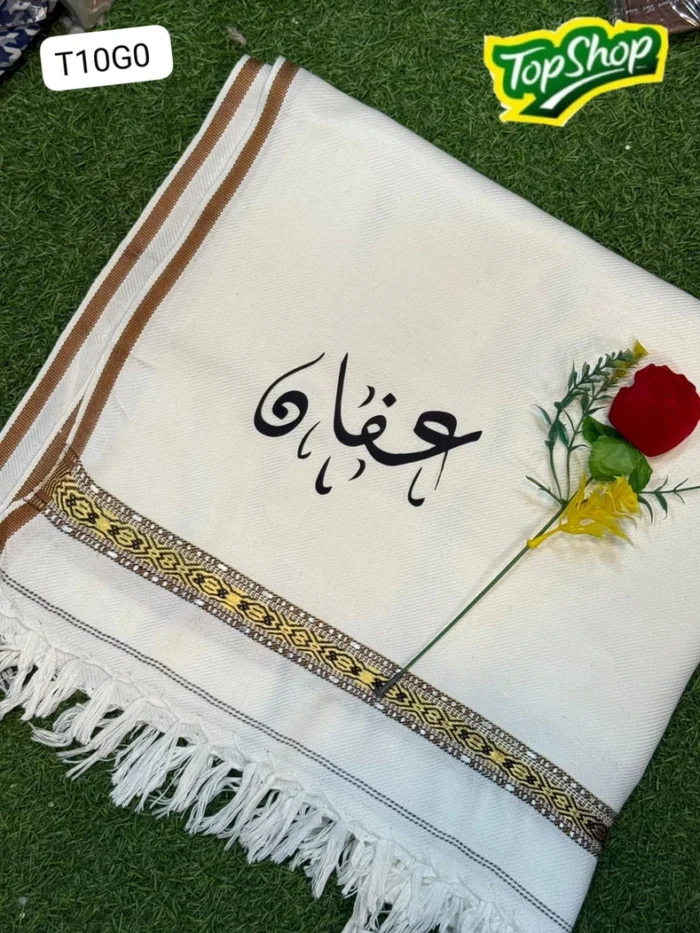 T10G0
TopShop
عفان